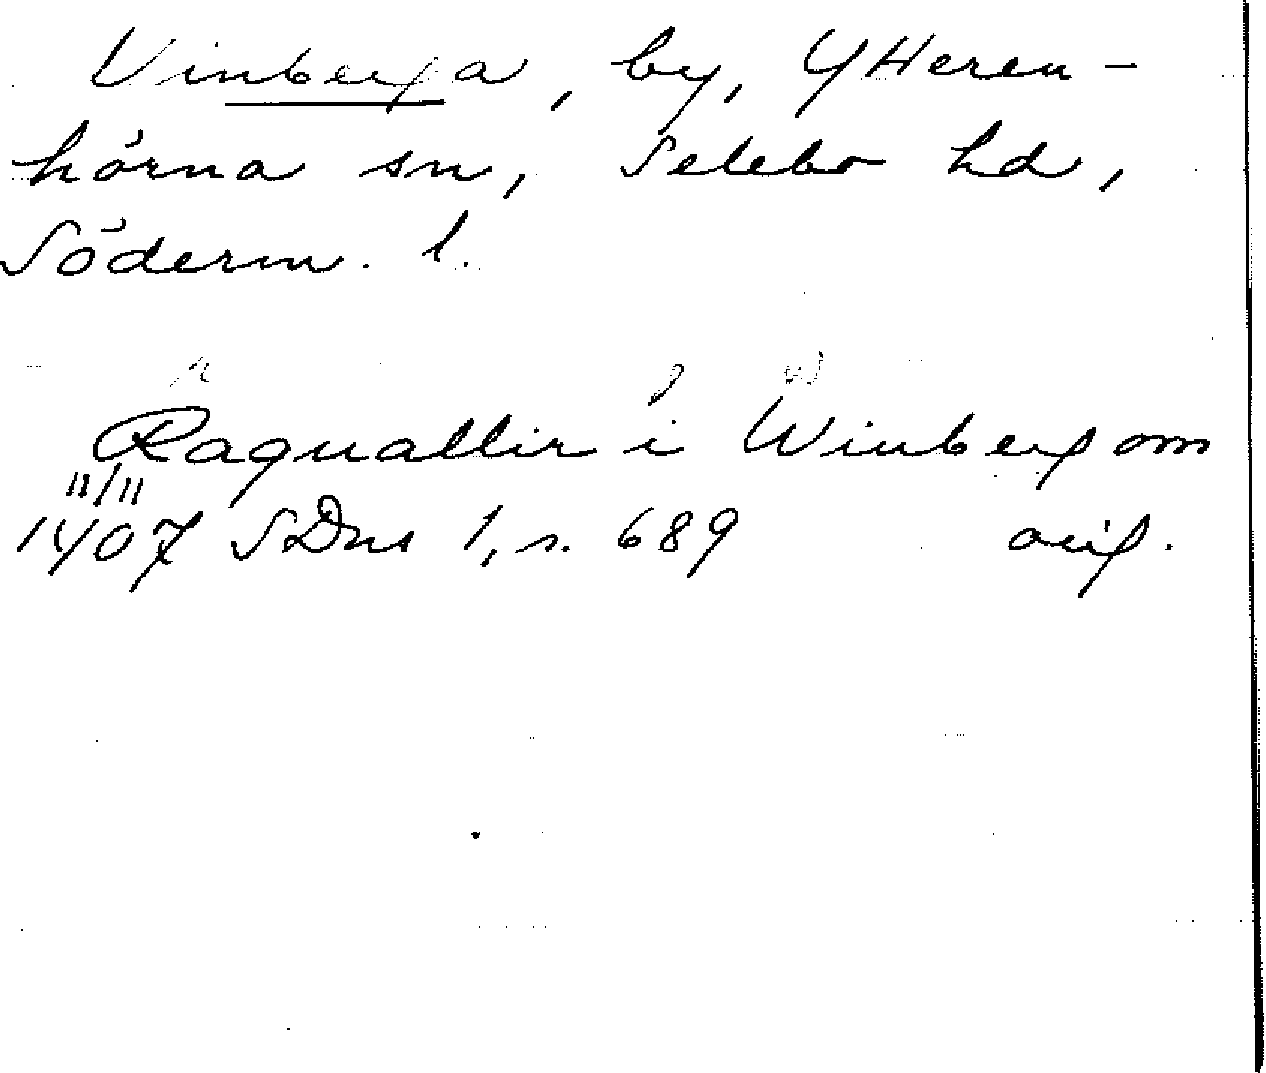 Vinberga, by, Ytteren-
hörna sn, Selebo hd,
Söderm. l.
Ragualler i Winbergom
11/11
1407 SDns 1, s. 689 orig.